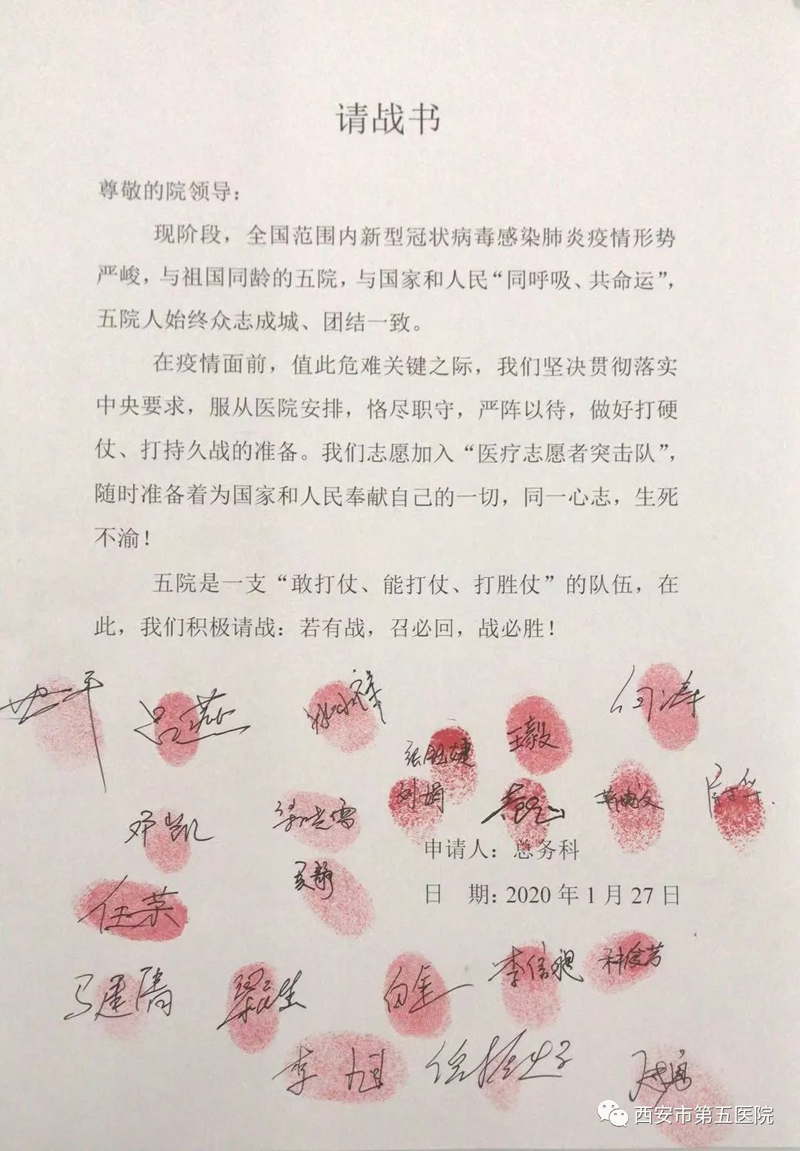 请战书
尊敬的院领导：
现阶段，全国范围内新型冠状病毒感染肺炎疫情形势
严峻，与祖国同龄的五院，与国家和人民“同呼吸、共命运”，
五院人始终众志成城、团结一致。
在疫情面前，值此危难关键之际，我们坚决贯彻落实
中央要求，服从医院安排，恪尽职守，严阵以待，做好打硬
仗、打持久战的准备。我们志愿加入“医疗志愿者突击队”，
随时准备着为国家和人民奉献自己的一切，同一心志，生死
不渝！
五院是一支“敢打仗、能打仗、打胜仗”的队伍，在
此，我们积极请战：若有战，召必回，战必胜！
吕燕 何涛
王毅
刘娟
邓凯
申请人：总务科
夏静
日 期：2020 年 1 月 27 日
任荣
马建清 白金 李信昶
李旭
西安市第五医院